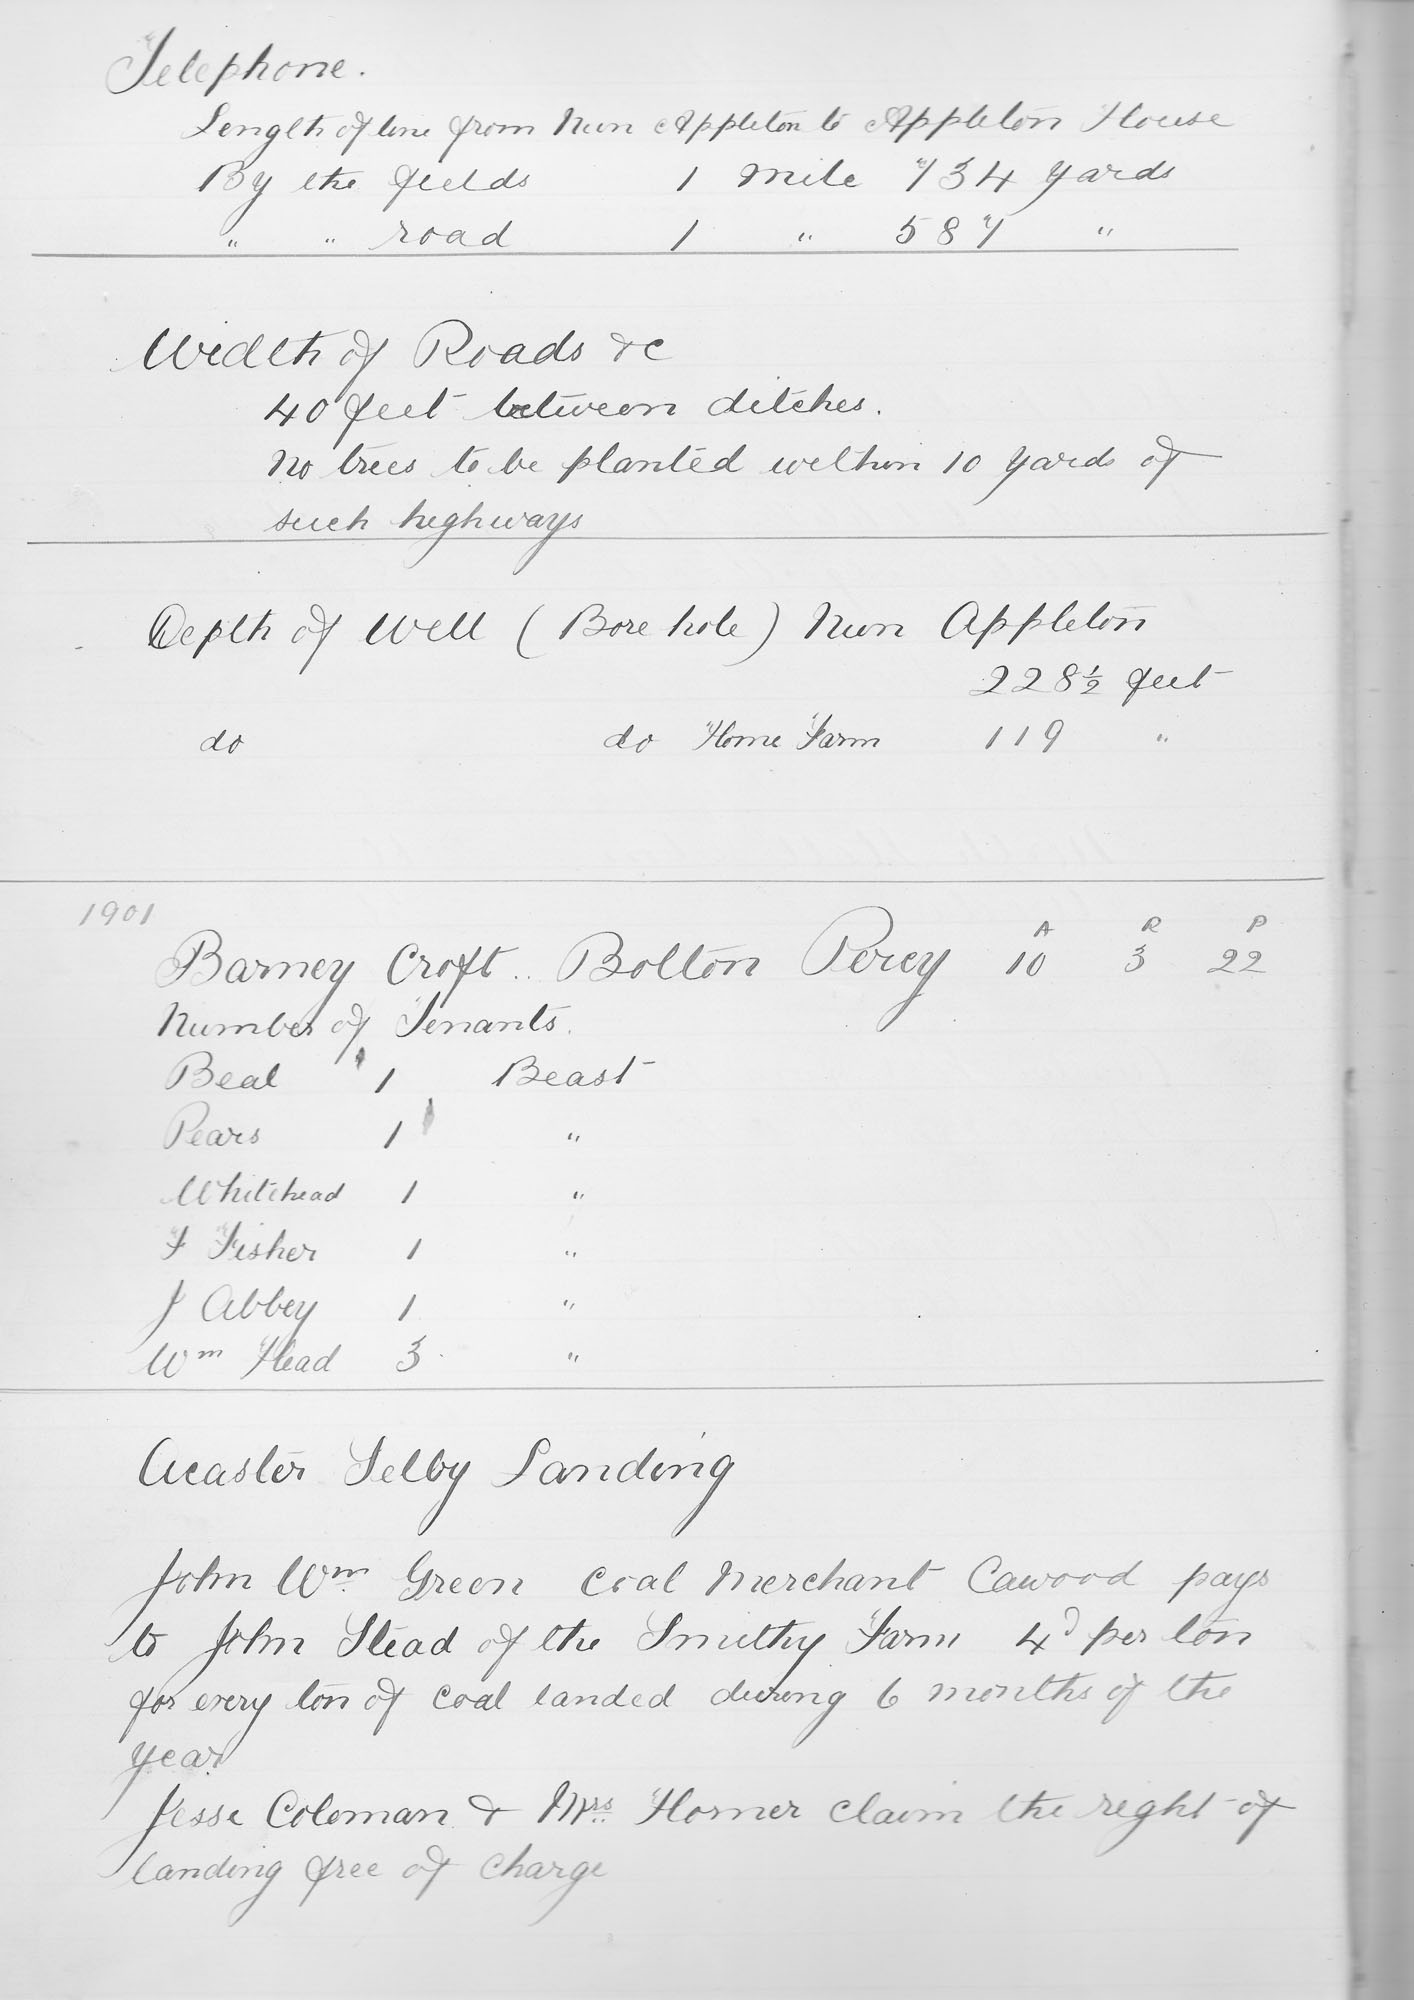 Telephone.
Length of line from Nun Appleton to Appleton House
By the fields 1 Mile 734 yards
" " road 1 " 587 "
Width of Roads &c
40 feet between ditches.
No trees to be planted within 10 yards of
such highways
Depth of Well (Bore hole) Nun Appleton
228½ feet
do do Home Farm 119 "
1901
A R P
Barney Croft .. Bolton Percy 10 3 22
Number of Tenants.
Beal 1 Beast
Pears 1 "
Whitehead 1 "
F Fisher 1 "
J Abbey 1 "
Wm Head 3 "
Acaster Selby Landing
John Wm Green Coal Merchant Cawood pays
to John Stead of the Smithy Farm 4d per ton
for every ton of coal landed during 6 months of the
year
Jesse Coleman & Mrs Horner claim the right of
landing free of charge